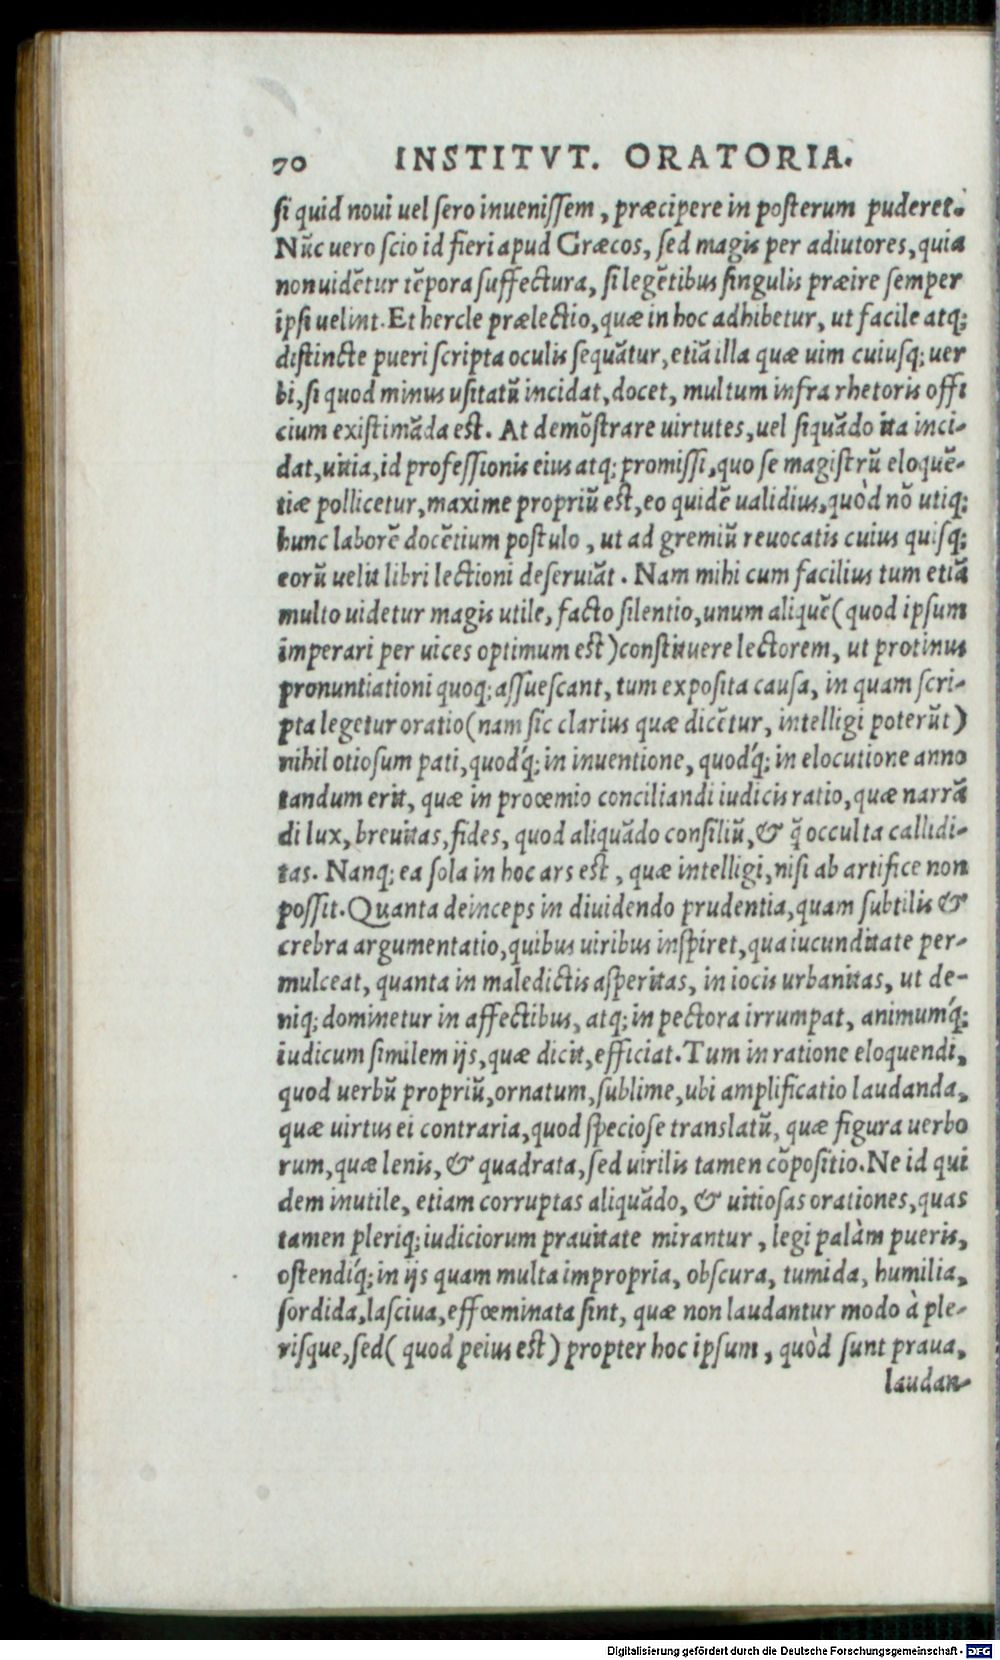 70 INSTITVT. ORATORIA.
si quid noui uel sero inuenissem, præcipere in posterum puderet.
Nũc uero scio id fieri apud Græcos, sed magis per adiutores, quia
non uidẽtur tẽpora suffectura, si legẽtibus singulis præire semper
ipsi uelint. Et hercle prælectio, quæ in hoc adhibetur, ut facile atq;
distincte pueri scripta oculis sequãtur, etiã illa quæ uim cuiusq; uer
bi, si quod minus usitatũ incidat, docet, multum infra rhetoris offi
cium existimãda est. At demõstrare uirtutes, uel siquãdo ita inci-
dat, uitia, id professionis eius atq; promissi, quo se magistrũ eloquẽ-
tiæ pollicetur, maxime propriũ est, eo quidẽ ualidius, quòd nõ utiq;
hunc laborẽ docẽtium postulo, ut ad gremiũ reuocatis cuius quisq;
eorũ uelit libri lectioni deseruiãt. Nam mihi cum facilius tum etiã
multo uidetur magis utile, facto silentio, unum aliquẽ (quod ipsum
imperari per uices optimum est) constituere lectorem, ut protinus
pronuntiationi quoq; assuescant, tum exposita causa, in quam scri-
pta legetur oratio (nam sic clarius quæ dicẽtur, intelligi poterũt)
nihil otiosum pati, quodq́; in inuentione, quodq́; in elocutione anno
tandum erit, quæ in procemio conciliandi iudicis ratio, quæ narrã
di lux, breuitas, fides, quod aliquãdo consiliũ, & q̃ occulta callidi-
tas. Nanq; ea sola in hoc ars est, quæ intelligi, nisi ab artifice non
possit. Quanta deinceps in diuidendo prudentia, quam subtilis &
crebra argumentatio, quibus uiribus inspiret, qua iucunditate per-
mulceat, quanta in maledictis asperitas, in iocis urbanitas, ut de-
niq; dominetur in affectibus, atq; in pectora irrumpat, animumq́;
iudicum similem ijs, quæ dicit, efficiat. Tum in ratione eloquendi,
quod uerbũ propriũ, ornatum, sublime, ubi amplificatio laudanda,
quæ uirtus ei contraria, quod speciose translatũ, quæ figura uerbo
rum, quæ lenis, & quadrata, sed uirilis tamen cõpositio. Ne id qui
dem inutile, etiam corruptas aliquãdo, & uitiosas orationes, quas
tamen pleriq; iudiciorum prauitate mirantur, legi palàm pueris,
ostendiq́; in ijs quam multa impropria, obscura, tumida, humilia,
sordida, lasciua, effœminata sint, quæ non laudantur modo à ple-
risque, sed (quod peius est) propter hoc ipsum, quòd sunt praua,
laudan-
Digitalisierung gefördert durch die Deutsche Forschungsgemeinschaft - DFG